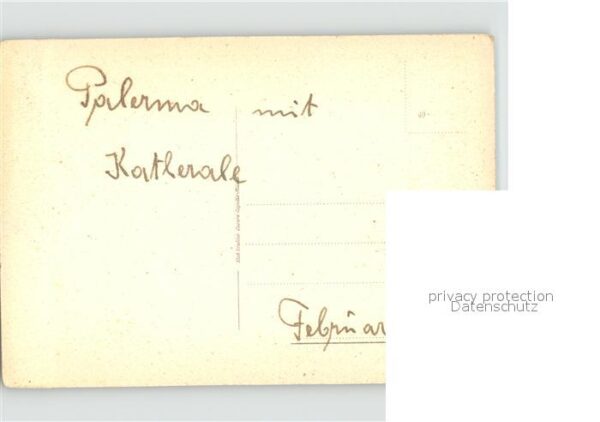 Palerma mit
Katlerale
Februar
privacy protection
Datenschutz